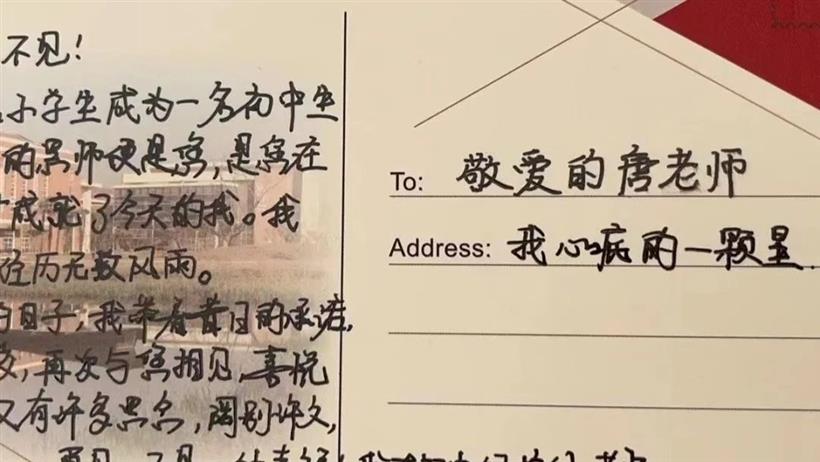 不见！
小学生成为一名初中生
的恩师便是您，是您在
成就了今天的我。我
经历无数风雨。
的日子，我带着昔日的承诺，
再次与您相见，喜悦
又有许多思念，阔别许久，
To: 敬爱的唐老师
Address: 我心底的一颗星